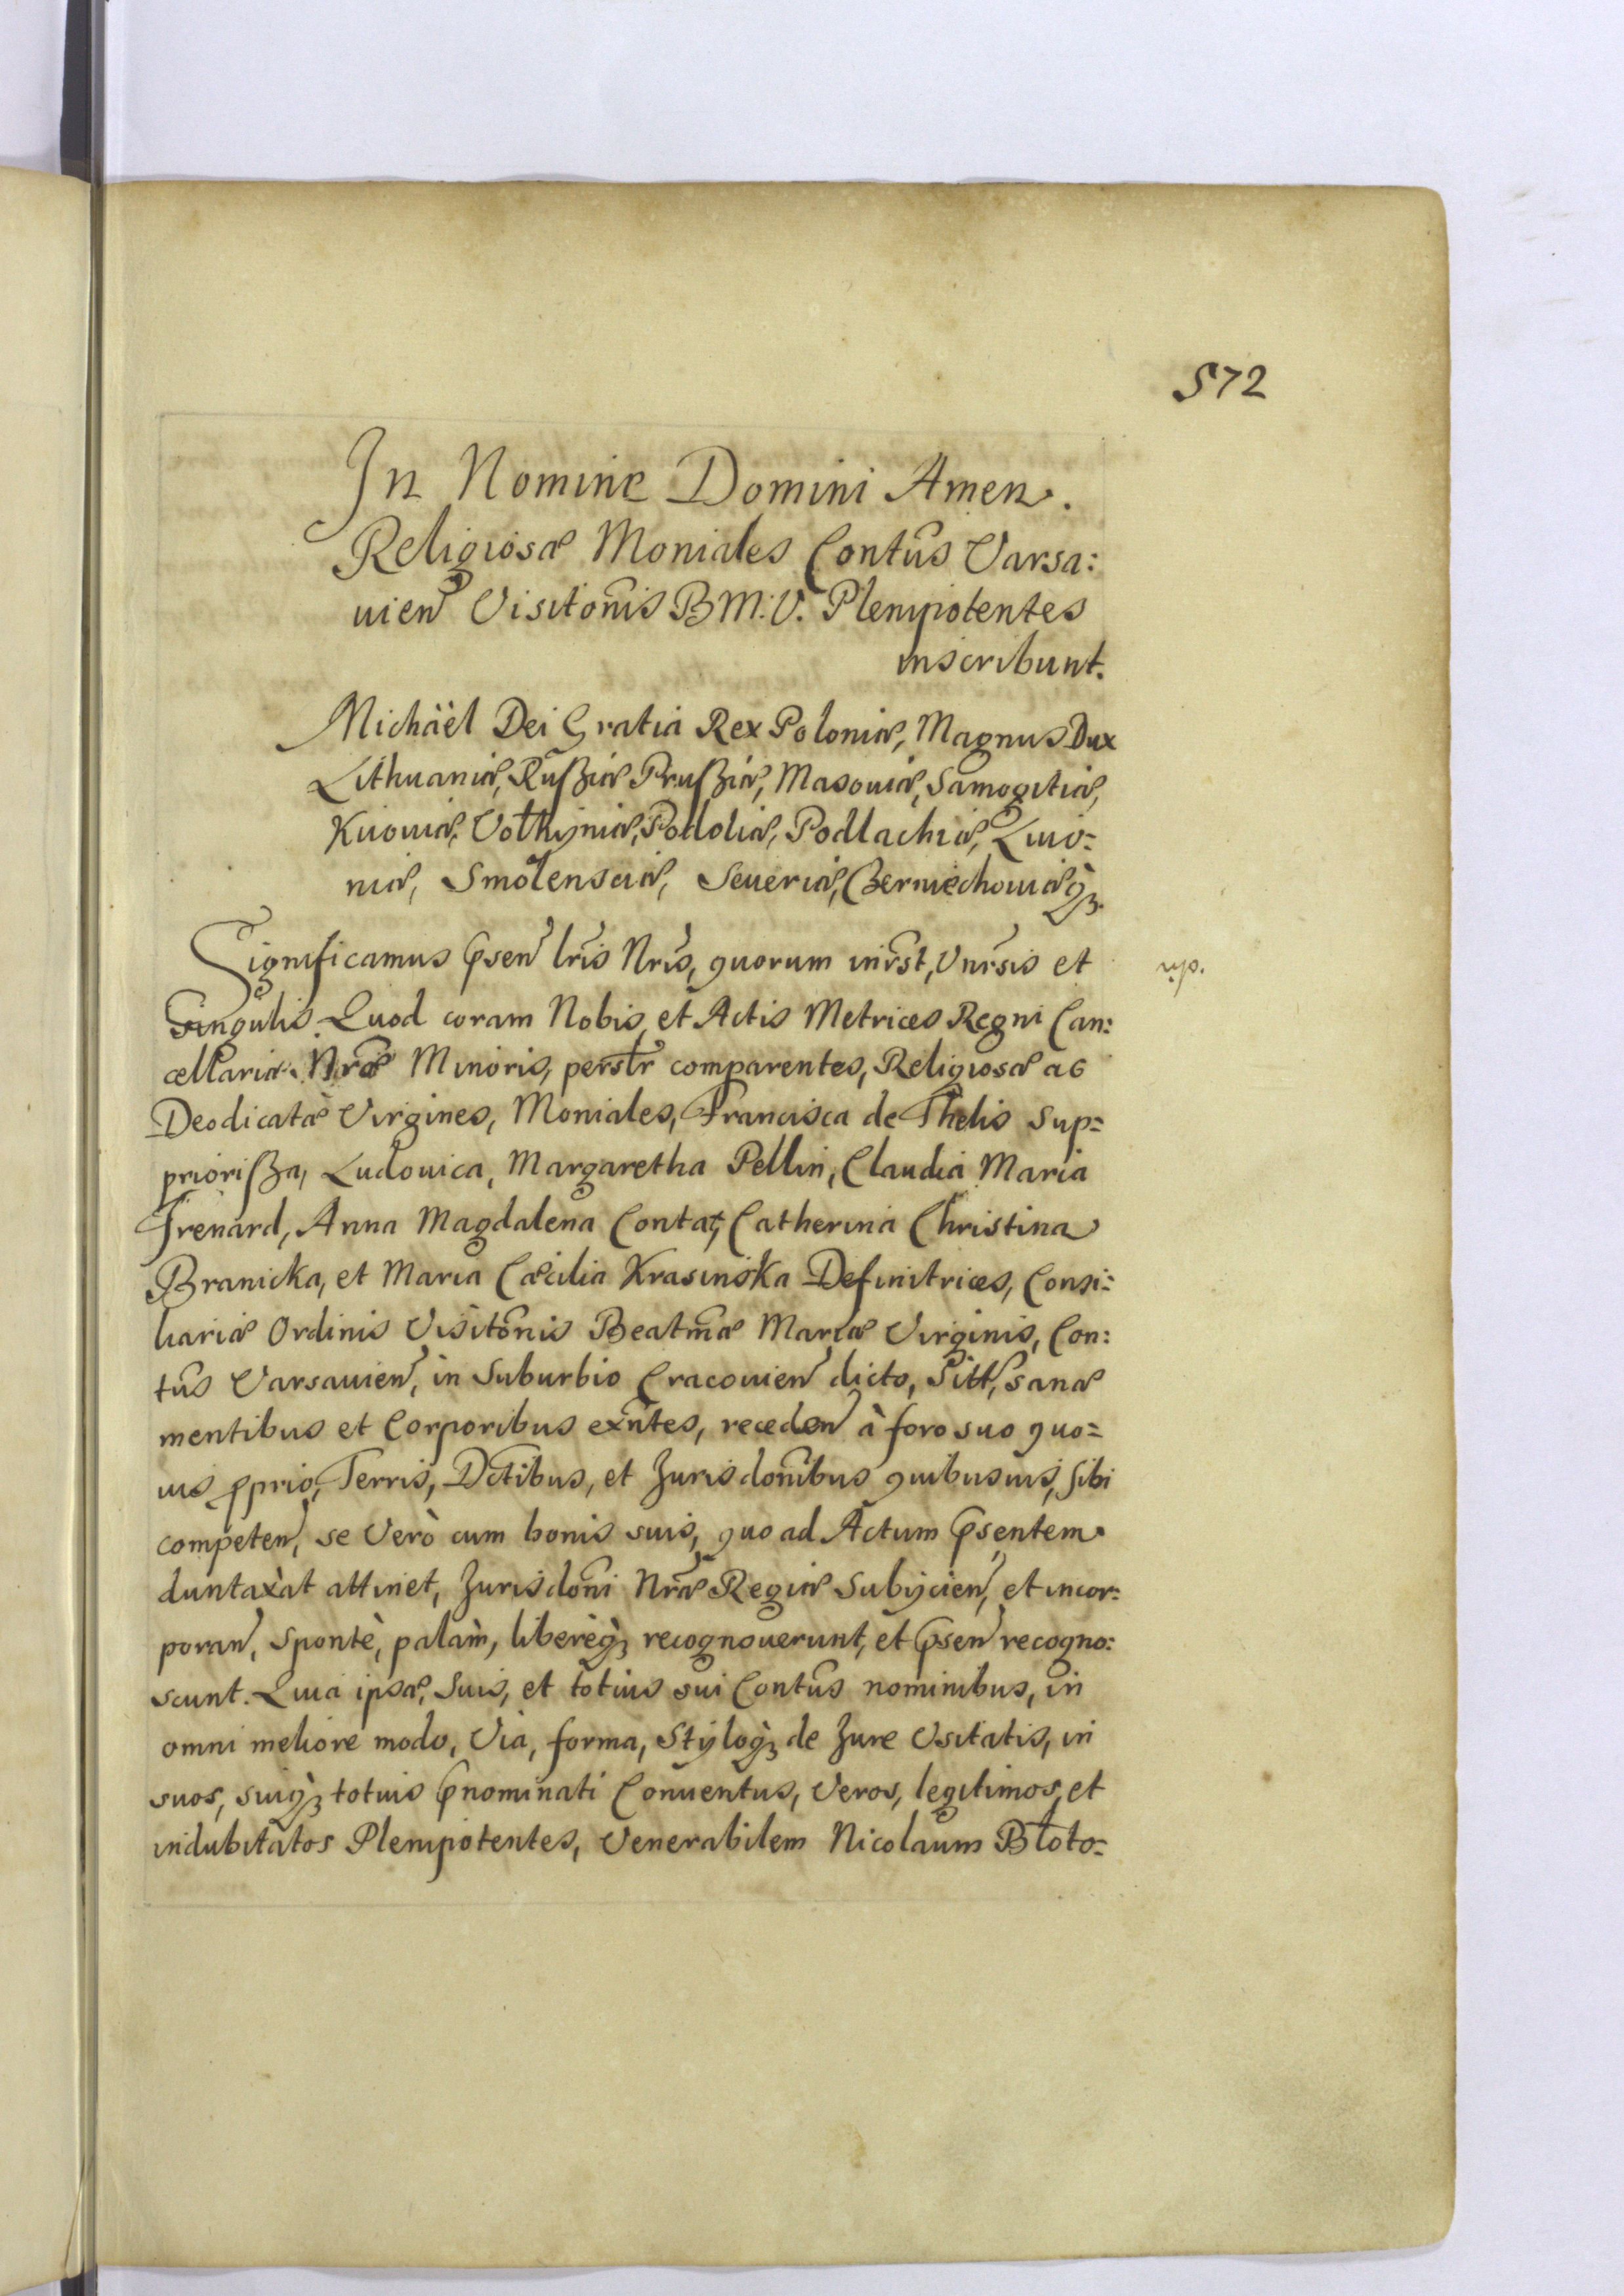 572
In Nomine Domini Amen.
Religiosæ Moniales Contûs Varsa:
uien Visitoñis B M: V. Plenipotentes
inscribunt.
Michäel Dei Gratia Rex Poloniæ, Magnus Dux
Lithuaniæ, Rußiæ Prußiæ, Masouiæ, Samogitiæ,
Kiiouiæ, Volhyniæ, Podoliæ, Podlachiæ, Liuo=
niæ, Smolensciæ, Seueriæ, Czerniechouiæq̀3
Significamus p̃sen lr̃is Nr̃is, quorum inr̃st, Vnr̃sis et
Singulis. Quod coram Nobis et Actis Metrices Regni Can:
cellariæ Nr̃æ Minoris, persl̃r comparentes, Religiosæ ac
Deodicatæ Virgines, Moniales, Francisca de Thelis Sup=
priorißa, Ludouica, Margaretha Pellin, Claudia Maria
Frenard, Anna Magdalena Contat, Catherina Christina
Branicka, et Maria Cæcilia Krasinska Definitrices, Consi=
liariæ Ordinis Visitoñis Beatmæ Mariæ Virginis, Con:
tûs Varsauien, in Suburbio Cracouien dicto, Sitt, Sanæ
mentibus et Corporibus exñtes, receden à foro suo quo=
uis p̱prio, Terris, Dctibus, et Jurisdonibus quibusuis, sibi
competen, se Verò cum bonis suis, quo ad Actum p̃sentem
duntaxàt attinet, Jurisdoñi Nræ Regiæ Subijcien, et incor:
poran, Spontè, palàm, liberèq̀3 recognouerunt, et p̃sen recogno:
scunt. Quia ipsæ, Suis, et totius sui Contûs nominibus, in
omni meliore modo, Via, forma, Styloq̀3 de Jure Vsitatis, in
suos, suiq̀3 totius p̃nominati Conuentus, Veros, legitimos, et
indubitatos Plenipotentes, Venerabilem Nicolaum Błoto=